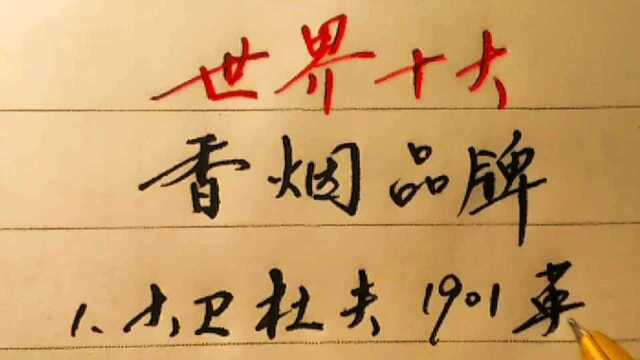 世界十大
香烟品牌
1、大卫杜夫 1901 英